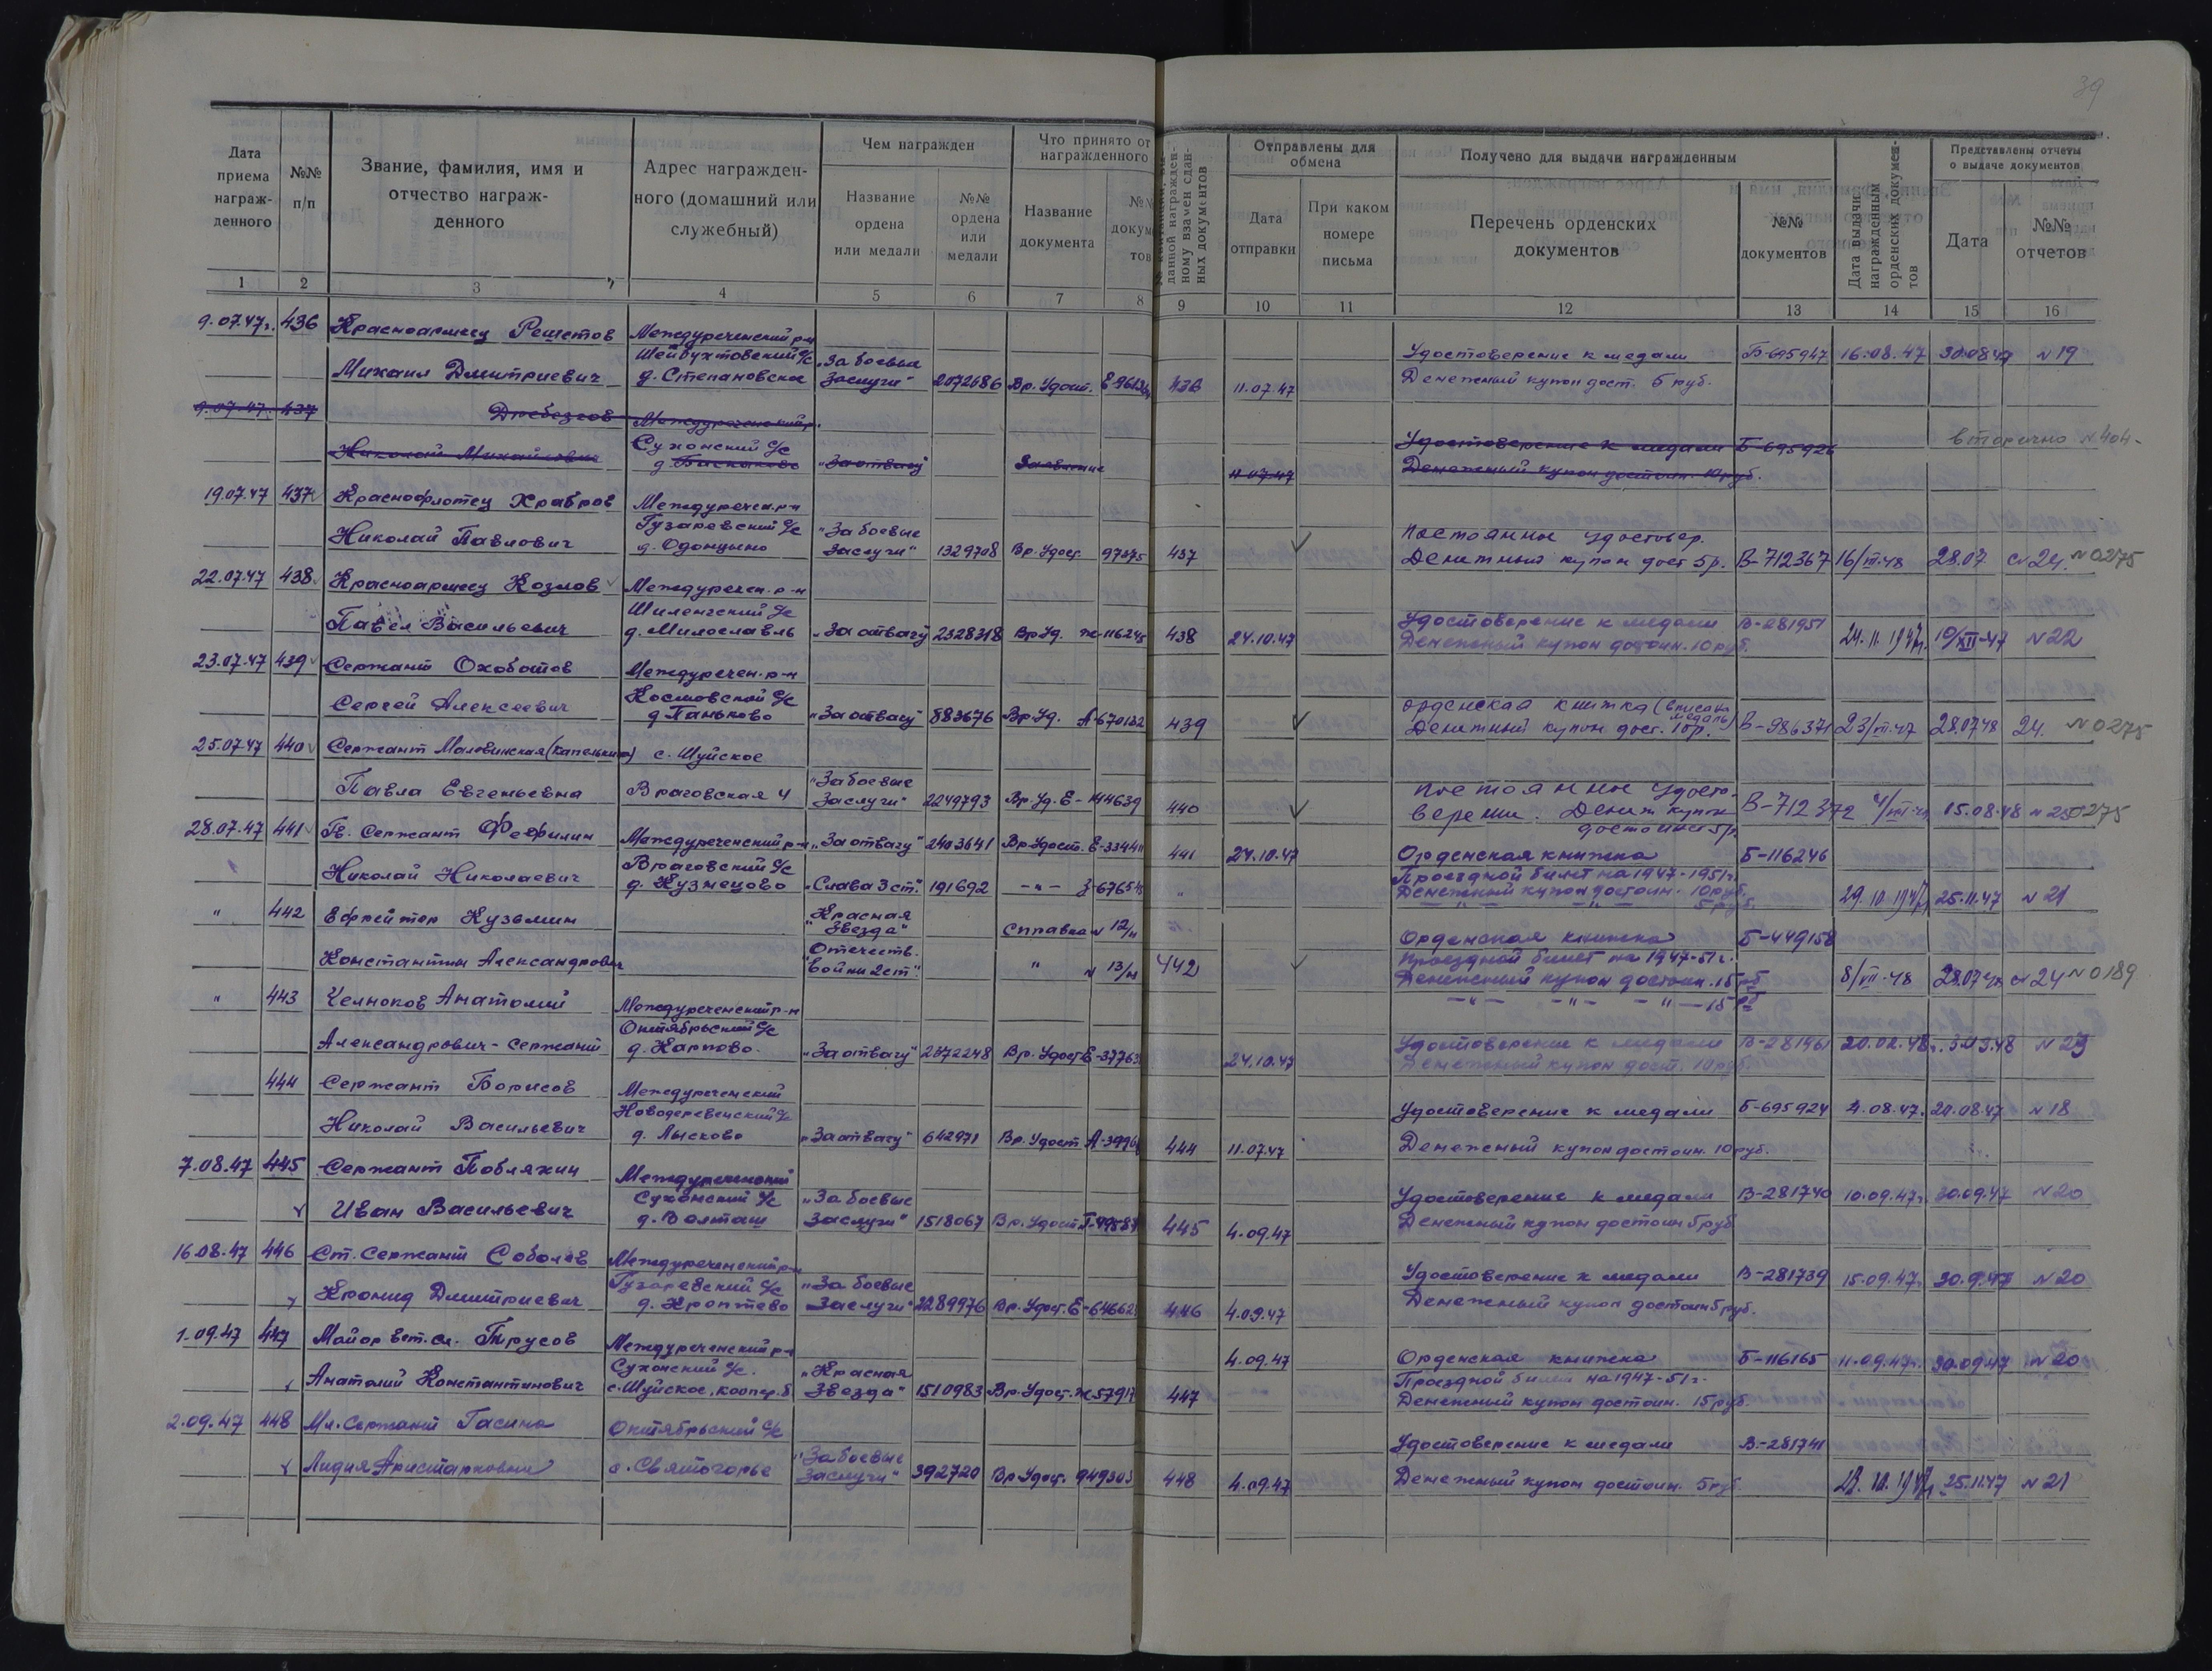 39
Дата приема награж-денного
№№ п/п
Звание, фамилия, имя и отчество награж-денного
Адрес награжден-ного (домашний или служебный)
Чем награжден
Название ордена или медали
№№ ордена или медали
Что принято от награжденного
Название документа
№№ докум тов
данной награжден-ному взамен сдан-ных документов
Отправлены для обмена
Дата отправки
При каком номере письма
Получено для выдачи награжденным
Перечень орденских документов
№№ документов
Дата выдачи награжденным орденских докумен-тов
Представлены отчеты о выдаче документов
Дата
№№ отчетов
1 2 3 4 5 6 7 8 9 10 11 12 13 14 15 16
9.07.47г. 436 Красноармеец Решетов Междуреченский р-н
Шейбухтовский с/с "За боевые Удостоверение к медали Б-695947 16.08.47 30.08.47 N 19
Михаил Дмитриевич д. Степановское Заслуги" 2072686 Вр. Удост. 436 11.07.47 Денежный купон дост. 5 руб.
9.07.47. 437 Дребезгов Междуреченский р.
Сухонский с/с Удостоверение к медали Б-695926 вторично N 404-
Николай Михайлович д. "За отвагу" Заявление 11.07.47 Денежный купон достоин. 10 руб.
19.07.47 437 Краснофлотец Храбров Междуречен. р-н
Гузаревский с/с "За боевые Постоянное удостовер.
Николай Павлович д. Одонцыно Заслуги" 1329708 Вр. Удост. 97375 437 Денежный купон дост 5 р. В-712367 16/VII-48 28.07. N 24. N 0275
22.07.47 438 Красноармеец Козлов Междуречен. р-н
Шиленгский с/с Удостоверение к медали В-281951
Павел Васильевич д. Милославль "За отвагу" 2328318 Вр Уд. Ж-116245 438 24.10.47 Денежный купон достоин. 10 руб. 24.11.1947г. 10/XII-47 N 22
23.07.47 439 Сержант Охоботов Междуречен. р-н
Костовский с/с орденская книжка (вписана медаль)
Сергей Алексеевич д. Паньково "За отвагу" 883676 Вр Уд. А-670132 439 Денежный купон дост. 10 р. В-986371 23/VII-47 28.07.48 24. N 0275
25.07.47 440 Сержант Малевинская (Капелькина) с. Шуйское
"За боевые Постоянное удосто-
Павла Евгеньевна Враговская 4 Заслуги" 2249793 Вр. Уд. Е-144639 440 верение. Денеж купон В-712372 15.08.48 N 25 0275
достоинст 5 р.
28.07.47 441 Гв. Сержант Фефилин Междуреченский р-н "За отвагу" 2403641 Вр Удост. Е-33441 441 24.10.47 Орденская книжка Б-116246
Враговский с/с Проездной билет на 1947-1951г.
Николай Николаевич д. Кузнецово "Слава 3 ст." 191692 -"- " Денежный купон достоин. 10 руб. 29.10.1947г. 25.11.47 N 21
-"- -"- 5 руб.
" 442 Ефрейтор Кузьмин "Красная Звезда" Справка N 12/н Орденская книжка Б-449158
Константин Александрович Отечеств. Войны 2 ст." " N 13/н 442 Проездной билет на 1947-51г.
Денежный купон достоин. 15 рб 8/VII-48 28.07.48 N 24 N 0189
-"- -"- -"- 15 рб
" 443 Челноков Анатолий Междуреченский р-н
Октябрьский с/с Удостоверение к медали В-281961 20.02.48г. N 23
Александрович - Сержант д. Карпово. "За отвагу" 2372248 Вр. Удост Е-37763 24.10.47 Денежный купон дост. 10 руб.
444 Сержант Борисов Междуреченский
Новодеревенский с/с Удостоверение к медали Б-695924 4.08.47. 20.08.47 N 18
Николай Васильевич д. Лысково "За отвагу" 642971 Вр. Удост А-3996 444 11.07.47 Денежный купон достоин. 10 руб.
7.08.47 445 Сержант Побляхин Междуреченский
Сухонский с/с "За боевые Удостоверение к медали В-281740 10.09.47г. 30.09.47 N 20
Иван Васильевич д. Волташ Заслуги" 1518067 Вр. Удост. 445 4.09.47 Денежный купон достоин 5 руб
16.08.47 446 Ст. Сержант Соболев Междуреченский р-н
Гузаревский с/с "За боевые Удостоверение к медали В-281739 15.09.47г. 30.9.47 N 20
Кронид Дмитриевич д. Кроптево Заслуги" 2289976 Вр. Удост. Е-64662 446 4.09.47 Денежный купон достоин 5 руб.
1.09.47 447 Майор вет. сл. Трусов Междуреченский р-н
Сухонский с/с. "Красная 4.09.47 Орденская книжка Б-116165 11.09.47г. 30.09.47 N 20
Анатолий Константинович с. Шуйское, коопер. 5 Звезда" 1510983 Вр. Удост. Ж 57917 447 Проездной билет на 1947-51г.
Денежный купон достоин. 15 руб.
2.09.47 448 Мл. Сержант Гасина Октябрьский с/с
"За боевые Удостоверение к медали В-281741
Лидия Аристарховна с. Святогорье Заслуги" 392720 Вр Удост. 949303 448 4.09.47 Денежный купон достоин. 5 руб 25.11.47 N 21